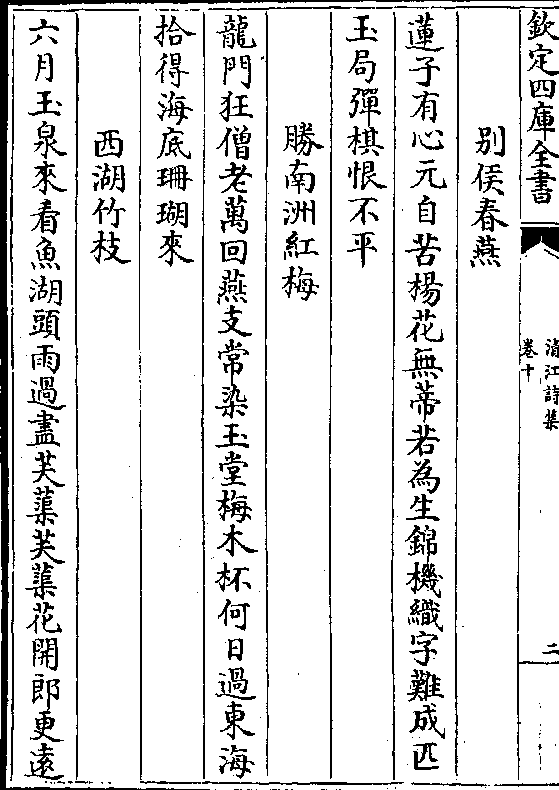 欽定四庫全書
清江詩集
卷十
二
别侯春燕
蓮子有心元自苦楊花無蒂若為生錦機織字難成匹
玉局彈棋恨不平
勝南洲紅梅
龍門狂僧老萬回燕支常染玉堂梅木杯何日過東海
拾得海底珊瑚來
西湖竹枝
六月玉泉來看魚湖頭雨過盡芙蕖芙蕖花開郎更遠